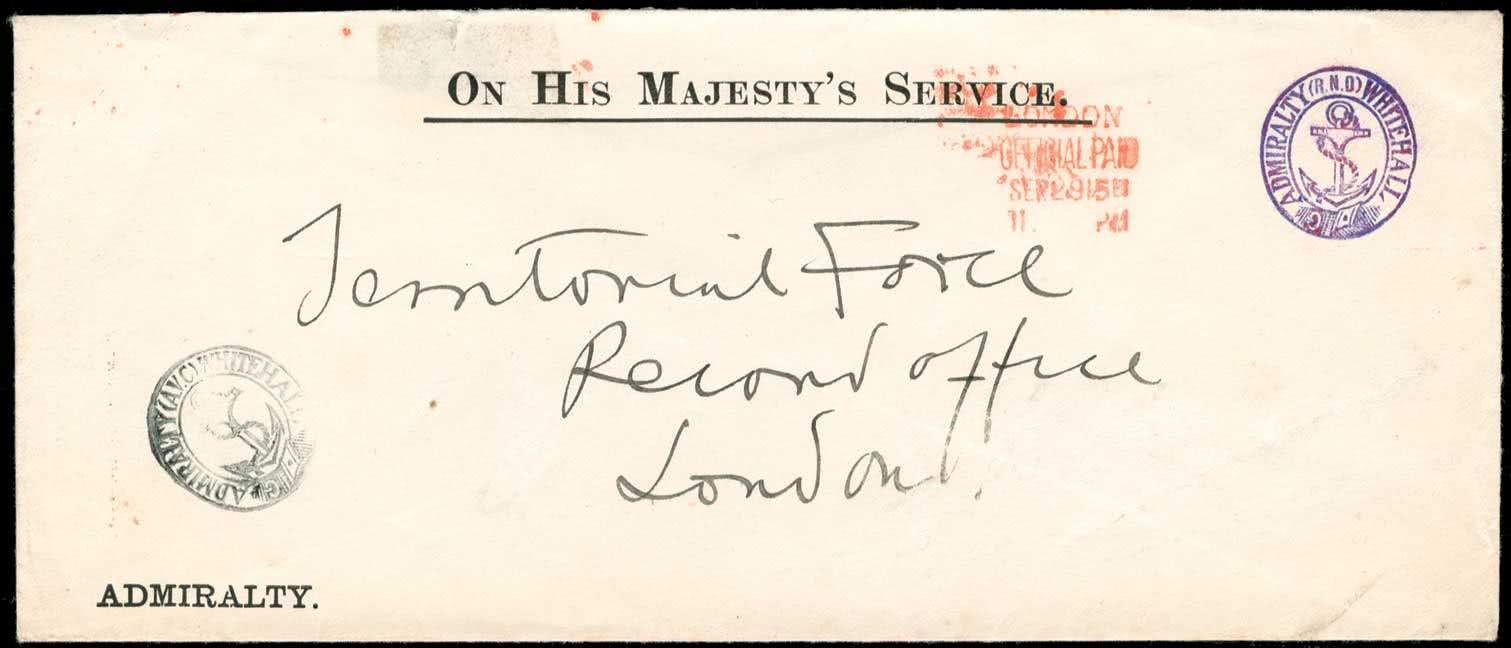 ON HIS MAJESTY'S SERVICE.
LONDON
OFFICIAL PAID
11. PM
ADMIRALTY (R.N.D) WHITEHALL
Territorial Force
Record Office
London.
ADMIRALTY (AV.C) WHITEHALL
ADMIRALTY.